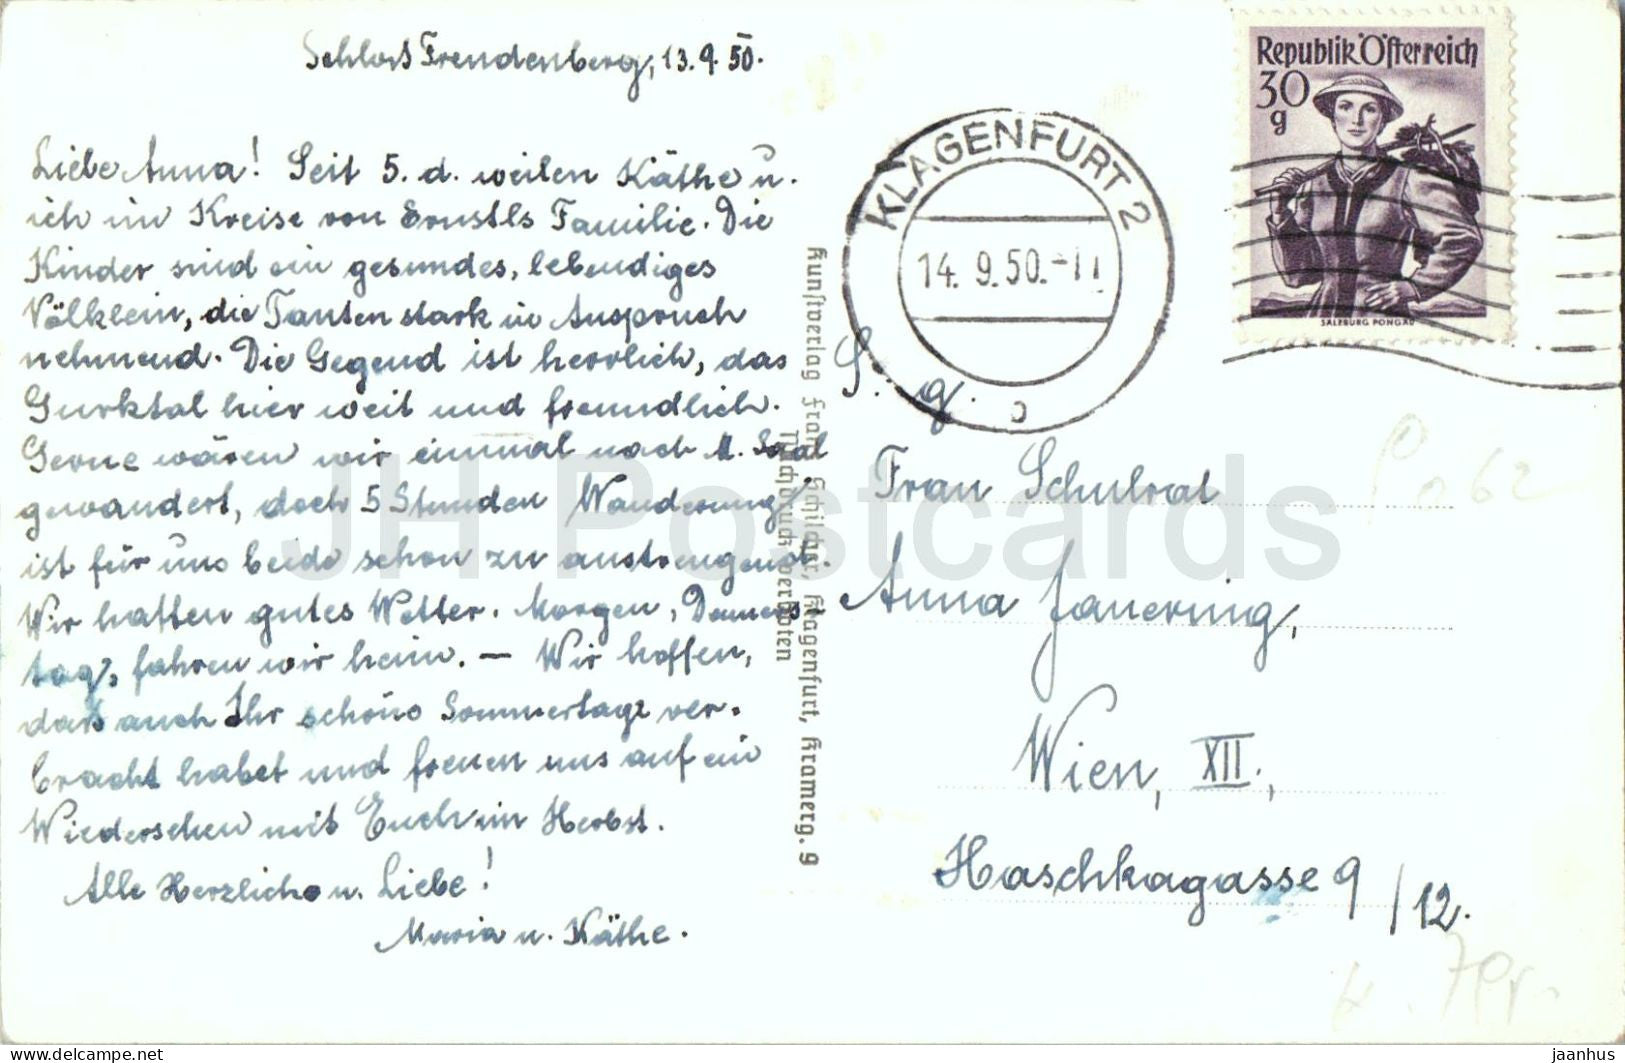 Schloß Freudenberg, 13.9.50.
Liebe Anna! Seit 5. d. weilen Käthe u.
ich im Kreise von Ernstls Familie. Die
Kinder sind ein gesundes, lebendiges
Völklein, die Tanten stark in Anspruch
nehmend. Die Gegend ist herrlich, das
Gurktal hier weit und freundlich.
Gerne wären wir einmal nach M. Saal
gewandert, doch 5 Stunden Wanderung
ist für uns beide schon zu anstrengend.
Wir hatten gutes Wetter. Morgen, Donners
tag, fahren wir heim. — Wir hoffen,
daß auch Ihr schöne Sommertage ver-
bracht habet und freuen uns auf ein
Wiedersehen mit Euch im Herbst.
Alle Herzliche u. Liebe!
Maria u. Käthe.
Kunstverlag Franz Schilcher, Klagenfurt, Kramerg. 9
Nachdruck verboten
KLAGENFURT 2
14. 9. 50.
Republik Österreich
30
g
SALZBURG PONGAU
S. g.
Frau Schulrat
Anna Jauernig,
Wien, XII.,
Haschkagasse 9/12.
JH Postcards
jaanhus @ delcampe.net